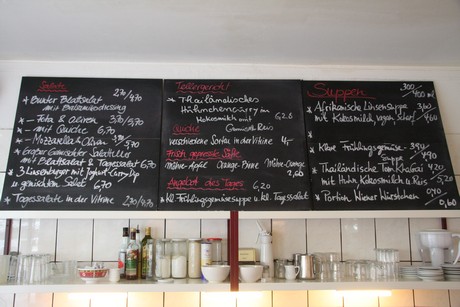 Salate
2,70/4,70
Bunter Blattsalat
mit Balsamicodressing
Feta & Oliven 3,70/5,70
mit Quiche
Mozzarella & Oliven
Salatteller
mit Blattsalat & Tagessalat 6,70
3 Linsenburger mit Joghurt-Curry Dip
gemischten Salat 6,70
Tagessalate in der Vitrine 2,90/
Tellergericht!
Thailändisches
Hühnchencurry in
Kokosmilch mit 6,20
Reis
Quiche
verschiedene Sorten in der Vitrine 4,-
Frisch gepresste Säfte
Möhre-Apfel Orange-Birne Möhre-Orange
2,60
Angebot des Tages
6,20
kl. Frühlingsgemüsesuppe u. kl. Tagessalat
Suppen
300/400 ml
Afrikanische Linsensuppe 3,60
mit Kokosmilch, vegan, scharf /4,60
Klare Frühlingsgemüse- 3,90
suppe /4,90
Thailändische Tom Kha Gai 4,20
mit Huhn, Kokosmilch u. Reis /5,20
Portion Wiener Würstchen
0,60